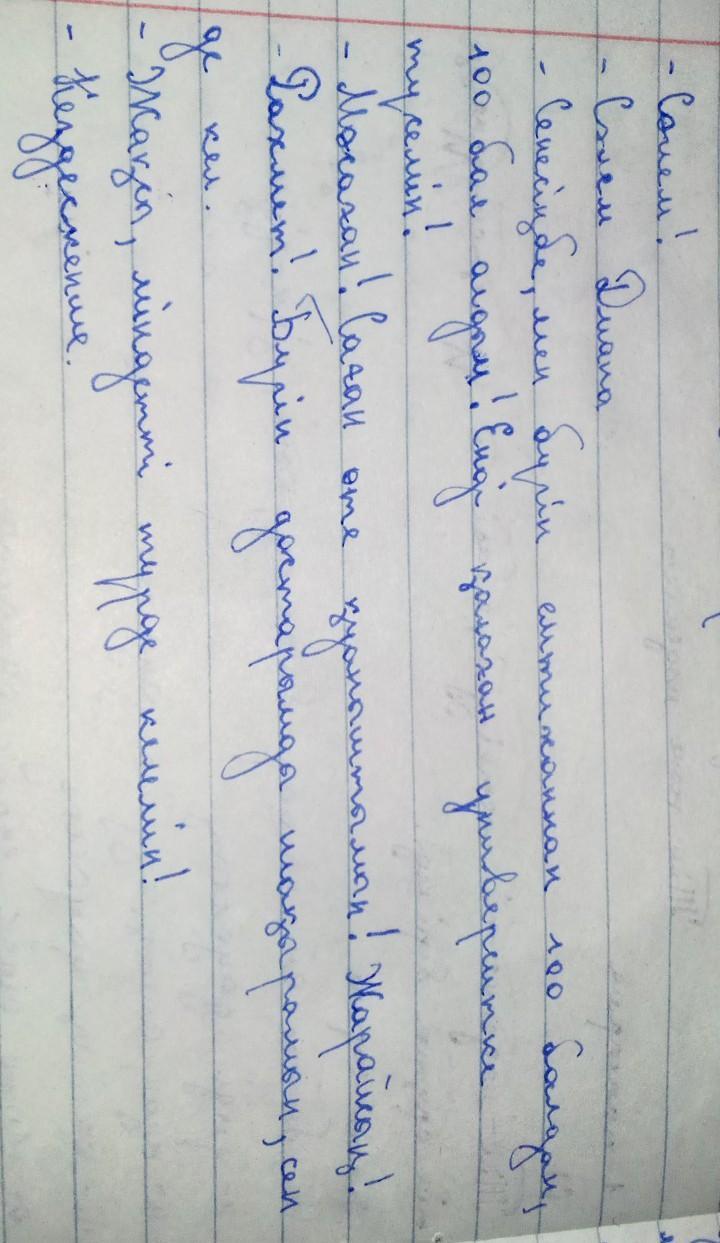 - Сәлем!
- Сәлем Диана
- Сенесің бе, мен бүгін емтиханнан 100 балдан,
100 бал алдым! Енді қалаған университке
түсемін!
- Мәссаған! Саған өте қуаныштымын! Жарайсың!
- Рахмет! Бүгін достарымды шақырамын, сен
де кел.
- Жақсы, міндетті түрде келемін!
- Кездескенше.